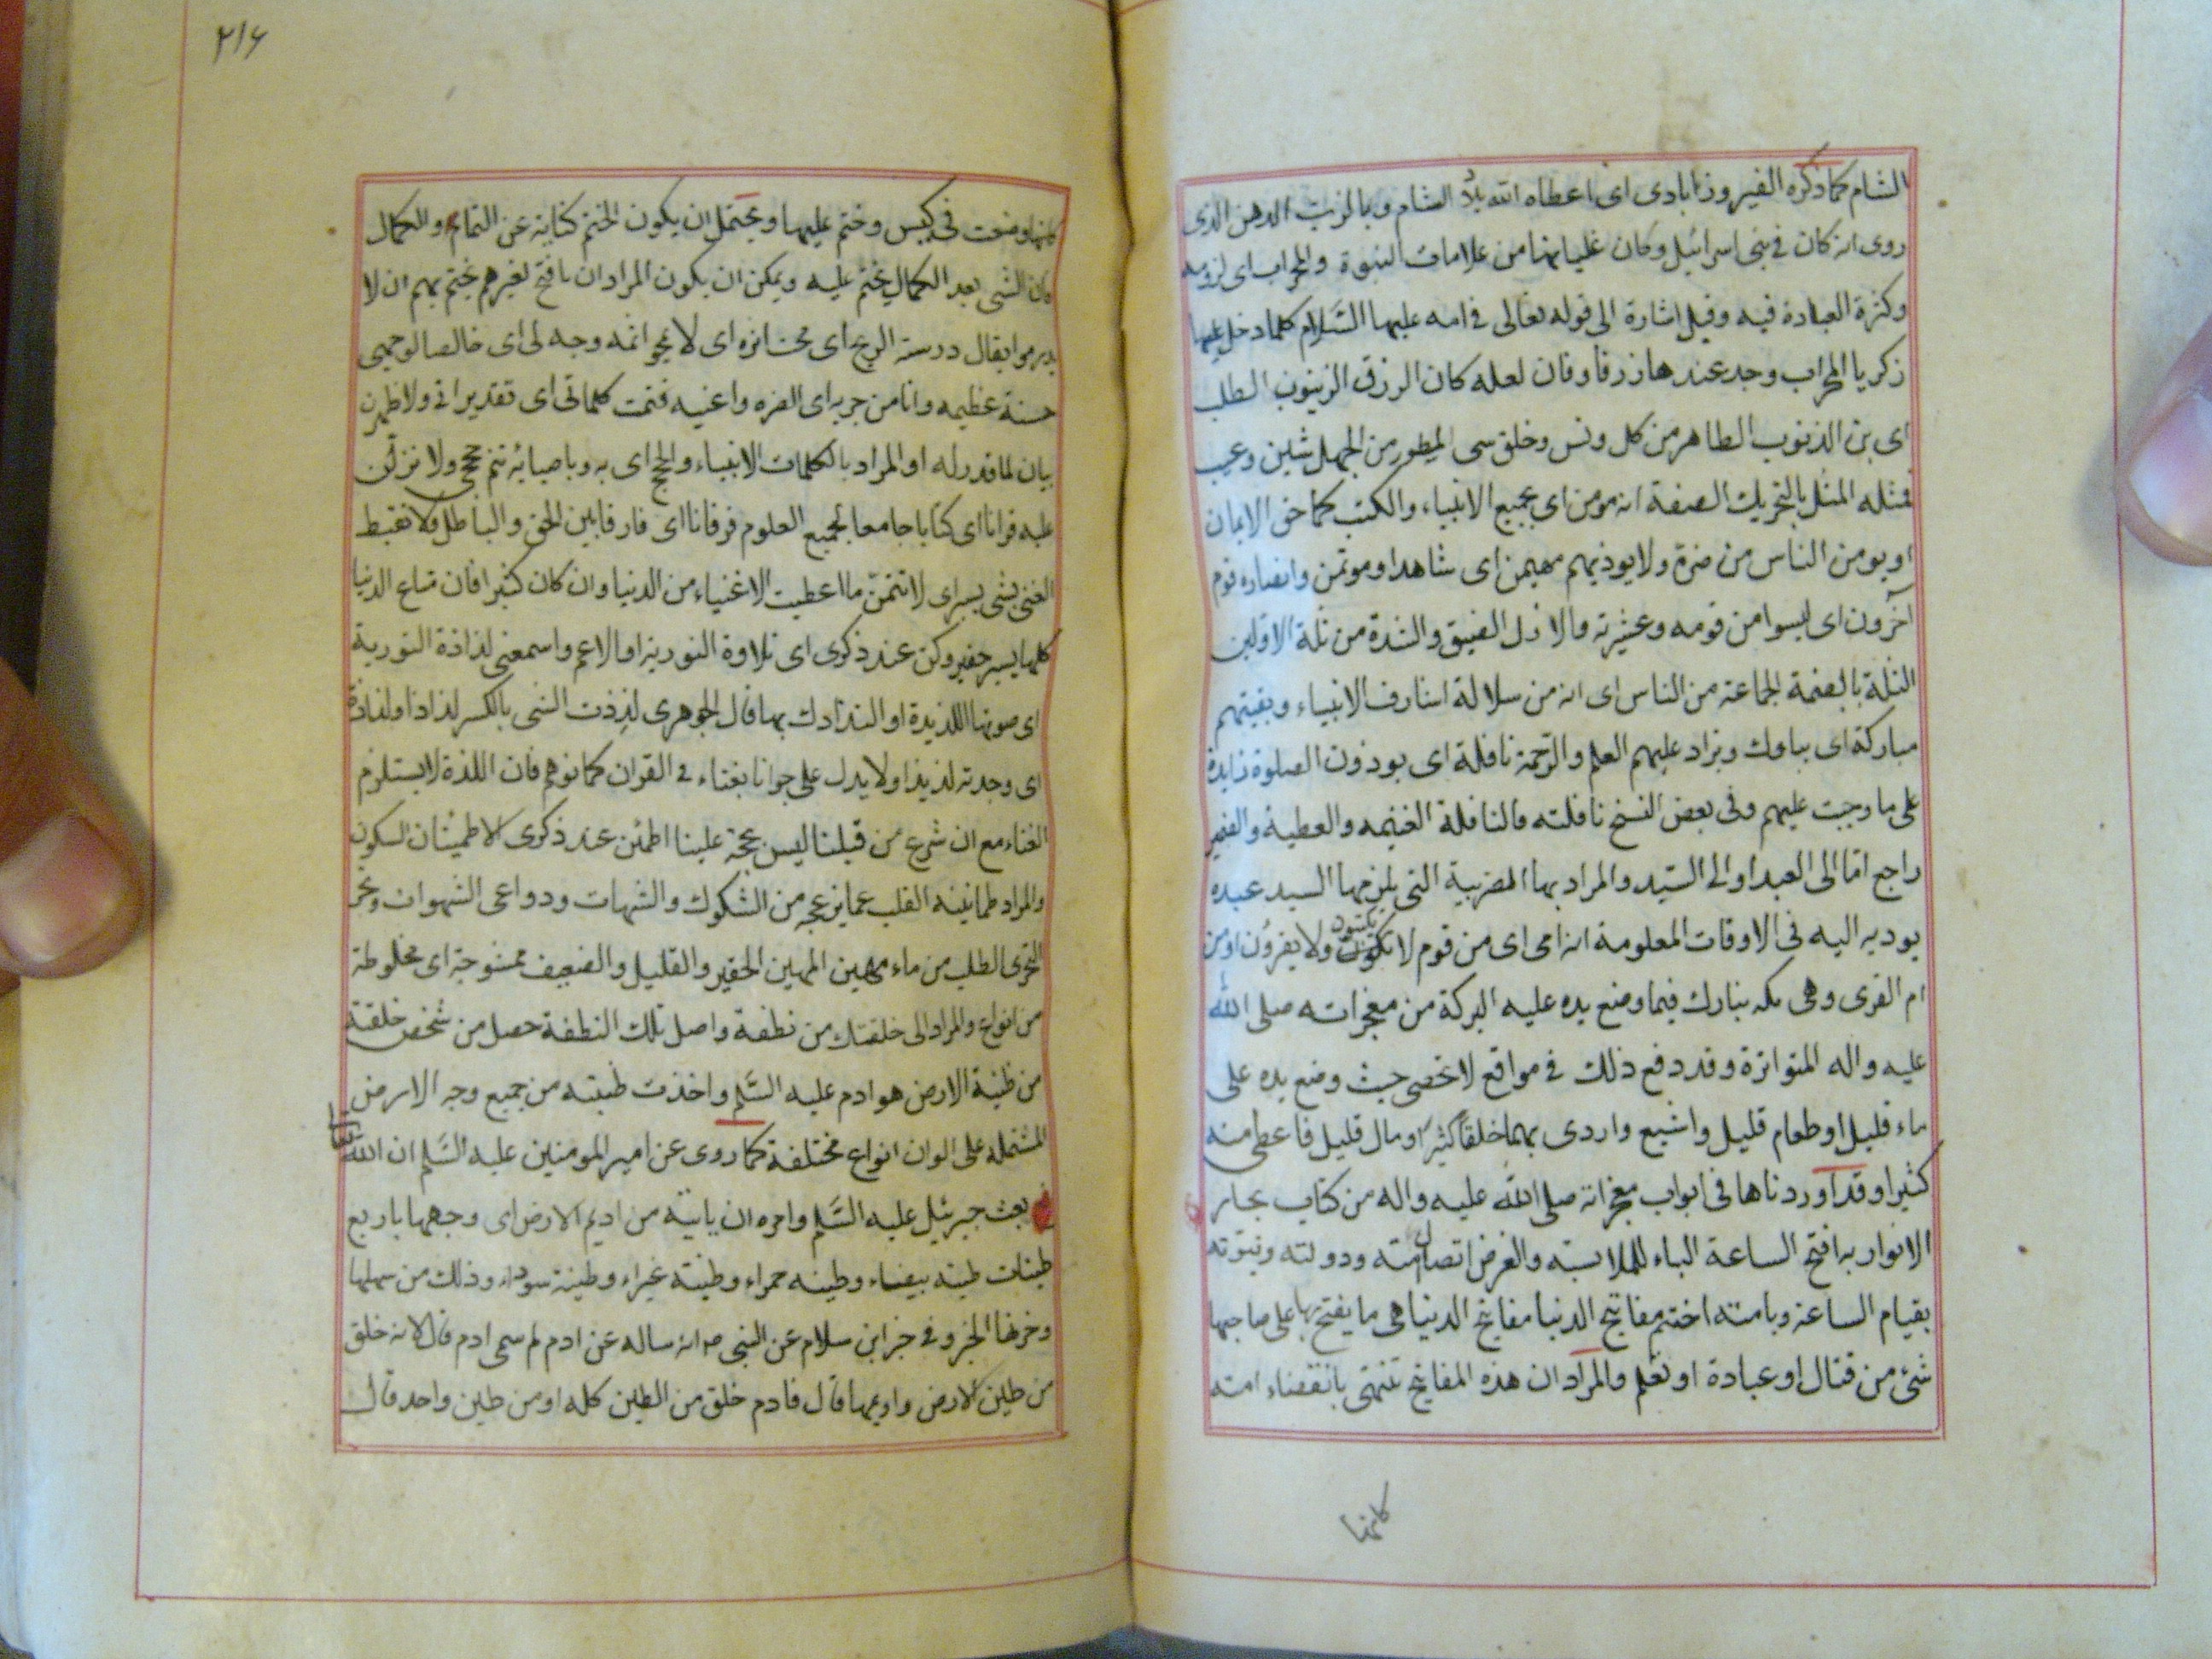 الشام كما ذكره الفيروزابادى اى اعطاه الله بلاد الشام وبالزيت الدهن الذى
روى انه كان فى بنى اسرائيل وكان غليانها من علامات النبوة والمحراب اى لزومه
وكثرة العبادة فيه وقيل اشارة الى قوله تعالى فى امه عليها السَّلام كلما دخل عليها
زكريا المحراب وجد عندها رزقا وقان لعله كان الرزق الزيتون الطلب
اى بن الذنوب الطاهر من كل ونس وخلق سى المطهر من الجهل شين وعيب
فمثله المثل بالتحريك الصفة انه مومن اى بجميع الانبياء والكتب كما حق الايمان
او يومن الناس من ضرّه ولا يوذيهم مهيمن اى شاهد او موتمن وانصاره قوم
آخرون اى ليسوا من قومه وعشيرته والازل الضيق والشدة من ثلة الاولين
الثلة بالضمة الجماعة من الناس اى انه من سلالة اشارف الانبياء وبقيتهم
مباركة اى يبارك ويزاد عليهم العلم والرّحمة نافلة اى يودون الصلوة زايدة
على ما وجبت عليهم وفى بعض النسخ نافلته فالنافلة الغنيمه والعطية والضمير
راجع امّا الى العبد او الى السيّد والمراد بها الضريبة التى يلزمها السيد عبده
يوديه اليه فى الاوقات المعلومة انه امى اى من قوم لا يكتبون ولا يقرؤن او من
ام القرى وهى مكه يبارك فيما وضع يده عليه البركة من معجزاته صلى الله
عليه واله المتواترة وقد دفع ذلك فى مواقع لا تحصى حيث وضع يده على
ماء قليل او طعام قليل واشبع واروى بهما خلقا كثيرا او مال قليل فاعطى منه
كثيرا وقد اوردناها فى ابواب معجزاته صلى الله عليه واله من كتاب بحار
الانوار به افتح الساعة الباء للملابسة والغرض اتصال امته ودولته ونبوّته
بقيام الساعة وبامته اختم مفاتيح الدنيا مفاتيح الدنيا هى ما يفتح بها على صاحبها
شئ من قتال او عبادة او تعلم والمراد ان هذه المفاتيح تنتهى بانقضاء امته
كانها
٢١۶
كانها وضعت فى كيس وختم عليها ويحتمل ان يكون الختم كناية عن التمام والكمال
فان الشى بعد الكمال يختم عليه ويمكن ان يكون المراد ان ما فتح لغيرهم يختم بهم ان لا
يدرسوا يقال درسته الريح اى محت اثره اى لا يمحو اسمه وجه لى اى خالصا لوجهى
حسنة عظيمه وانا من حزبه اى انصره واعنيه فتمت كلماتى اى تقديراتى ولاظهرن
بيان لما قدر له او المراد بالكلمات الانبياء والحجج اى به وباوصيائه تتم حججى ولا نزلن
عليه قرانا اى كتابا جامعا لجميع العلوم فرقانا اى فارقا بين الحق والباطل ولا تغبط
الغنى بشى يسير اى لا تتمنّ ما اعطيت الاغنياء من الدنيا وان كان كثيرا فان متاع الدنيا
كلها يسير حقير وكن عند ذكرى اى تلاوة التورية او الاعم واسمعنى لذاذة التورية
اى صوتها اللذيذة او التذاذك بها قال الجوهرى لذذت الشى بالكسر لذاذا ولذاذة
اى وجدته لذيذا ولا يدل على جواز التغناء فى القران كما توهم فان اللذة لا يستلزم
الغناء مع ان شرع من قبلنا ليس بحجة علينا اطمئن عند ذكرى الاطمينان السكون
والمراد طمانينة القلب عما يزعجه من الشكوك والشبهات ودواعى الشهوات وتحر
التحرى الطلب من ماء مهين المهين الحقير والقليل والضعيف ممشوجة اى مخلوطة
من انواع والمراد الى خلقتك من نطفة واصل تلك النطفة حصل من شخص خلقته
من طينة الارض هو ادم عليه السَّلم واخذت طينته من جميع وجه الارض
المشتملة على الوان انواع مختلفة كما روى عن امير المومنين عليه السَّلم ان الله تعالى
بعث جبرئيل عليه السَّلم وامره ان ياتيه من اديم الارض اى وجهها باربع
طينات طينة بيضاء وطينه حمراء وطينة غبراء وطينة سوداء وذلك من سهلها
وحزنها الخبر وفى خبر ابن سلام عن النبى ص انه ساله عن ادم لم سمى ادم قال لانه خلق
من طين الارض واديمها قال فادم خلق من الطين كله او من طين واحد قال